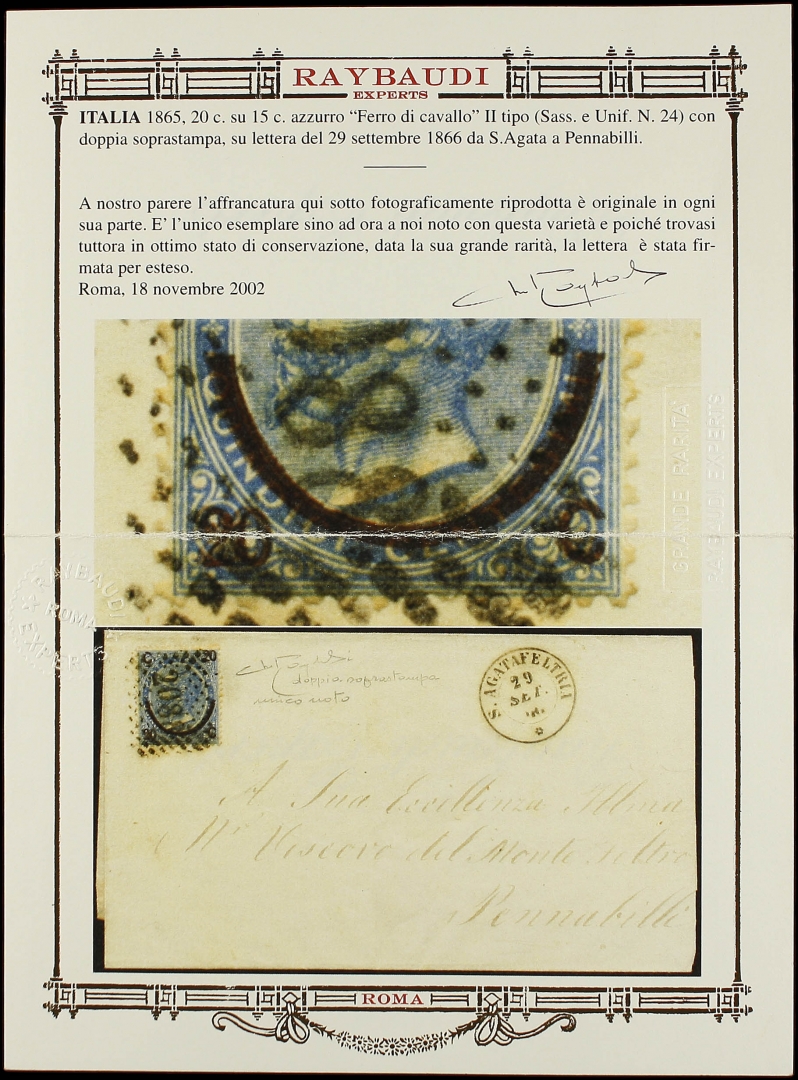 RAYBAUDI
EXPERTS
ITALIA 1865, 20 c. su 15 c. azzurro “Ferro di cavallo” II tipo (Sass. e Unif. N. 24) con
doppia soprastampa, su lettera del 29 settembre 1866 da S.Agata a Pennabilli.
A nostro parere l’affrancatura qui sotto fotograficamente riprodotta è originale in ogni
sua parte. E’ l’unico esemplare sino ad ora a noi noto con questa varietà e poiché trovasi
tuttora in ottimo stato di conservazione, data la sua grande rarità, la lettera è stata fir-
mata per esteso.
Roma, 18 novembre 2002
GRANDE RARITA'
RAYBAUDI EXPERTS
RAYBAUDI
ROMA
EXPERTS
doppia soprastampa
unico noto
S. AGATAFELTRIA
29
SET.
66
A Sua Eccellenza Illma
Mr Vescovo del Monte Feltro
Pennabilli
ROMA